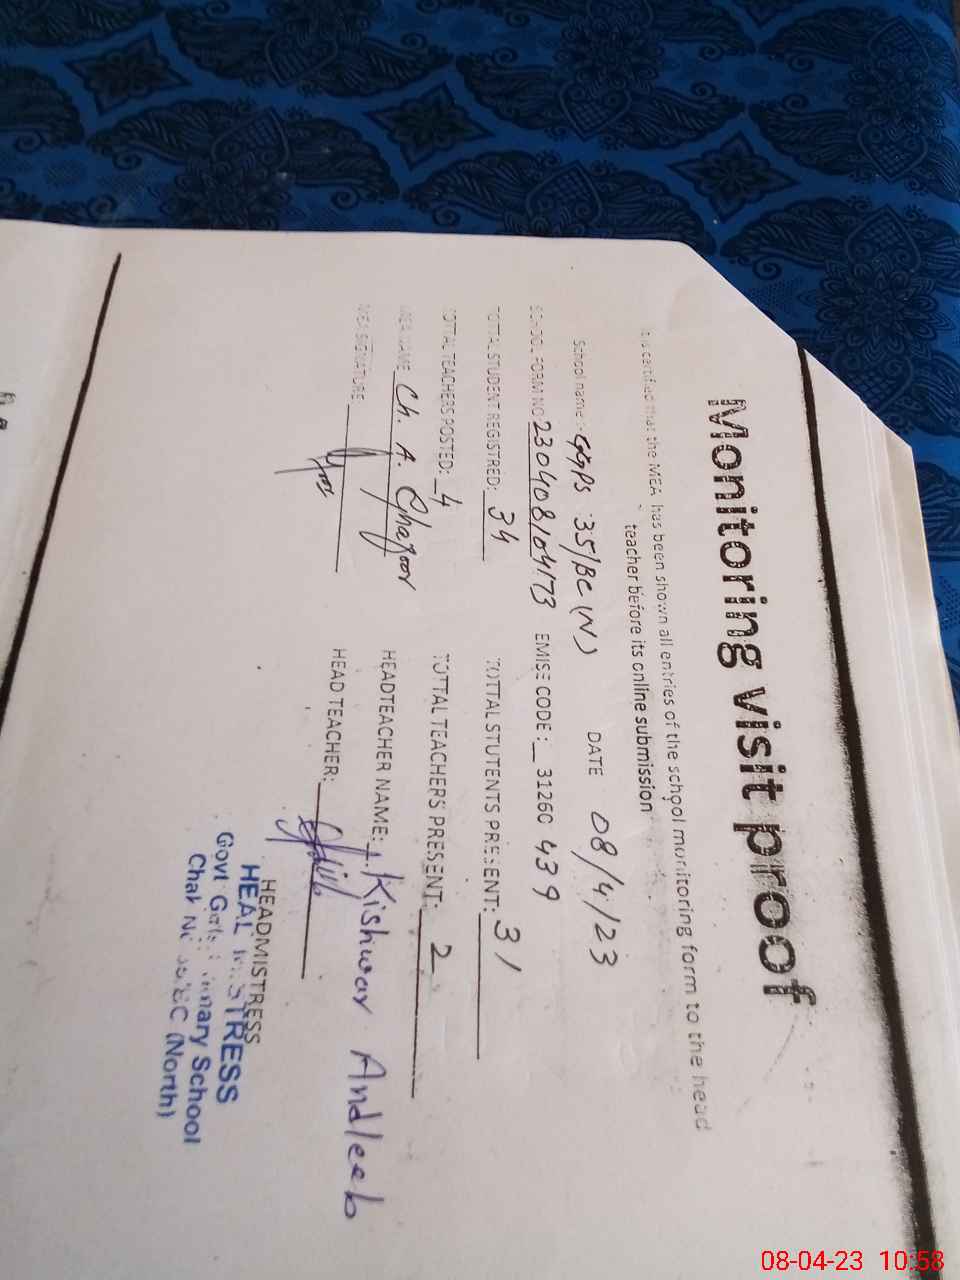 Monitoring visit proof
It is certified that the MEA has been shown all entries of the school monitoring form to the head
teacher before its online submission
School name:- GGPS 35/BC (N) DATE 08/4/23
SCHOOL FORM NO 230408104173 EMISE CODE: 31260 439
TOTTAL STUDENT REGISTRED: 34 TOTTAL STUTENTS PRESENT: 31
TOTTAL TEACHERS POSTED: 4 TOTTAL TEACHERS PRESENT: 2
MEA NAME Ch. A. Ghafoor HEADTEACHER NAME: Kishwar Andleeb
MEA SIGNATURE HEAD TEACHER:
HEADMISTRESS
HEAD MISTRESS
Govt Girls Primary School
Chak No 35/BC (North)
08-04-23 10:58